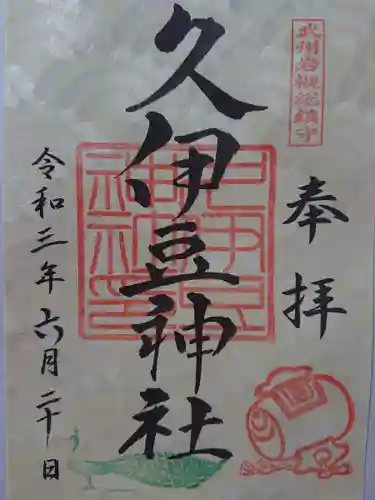 武州岩槻総鎮守
奉拝
久伊豆神社
令和三年六月二十日